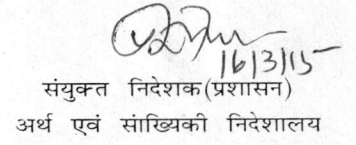 16/3/15
संयुक्त निदेशक(प्रशासन)
अर्थ एवं सांख्यिकी निदेशालय